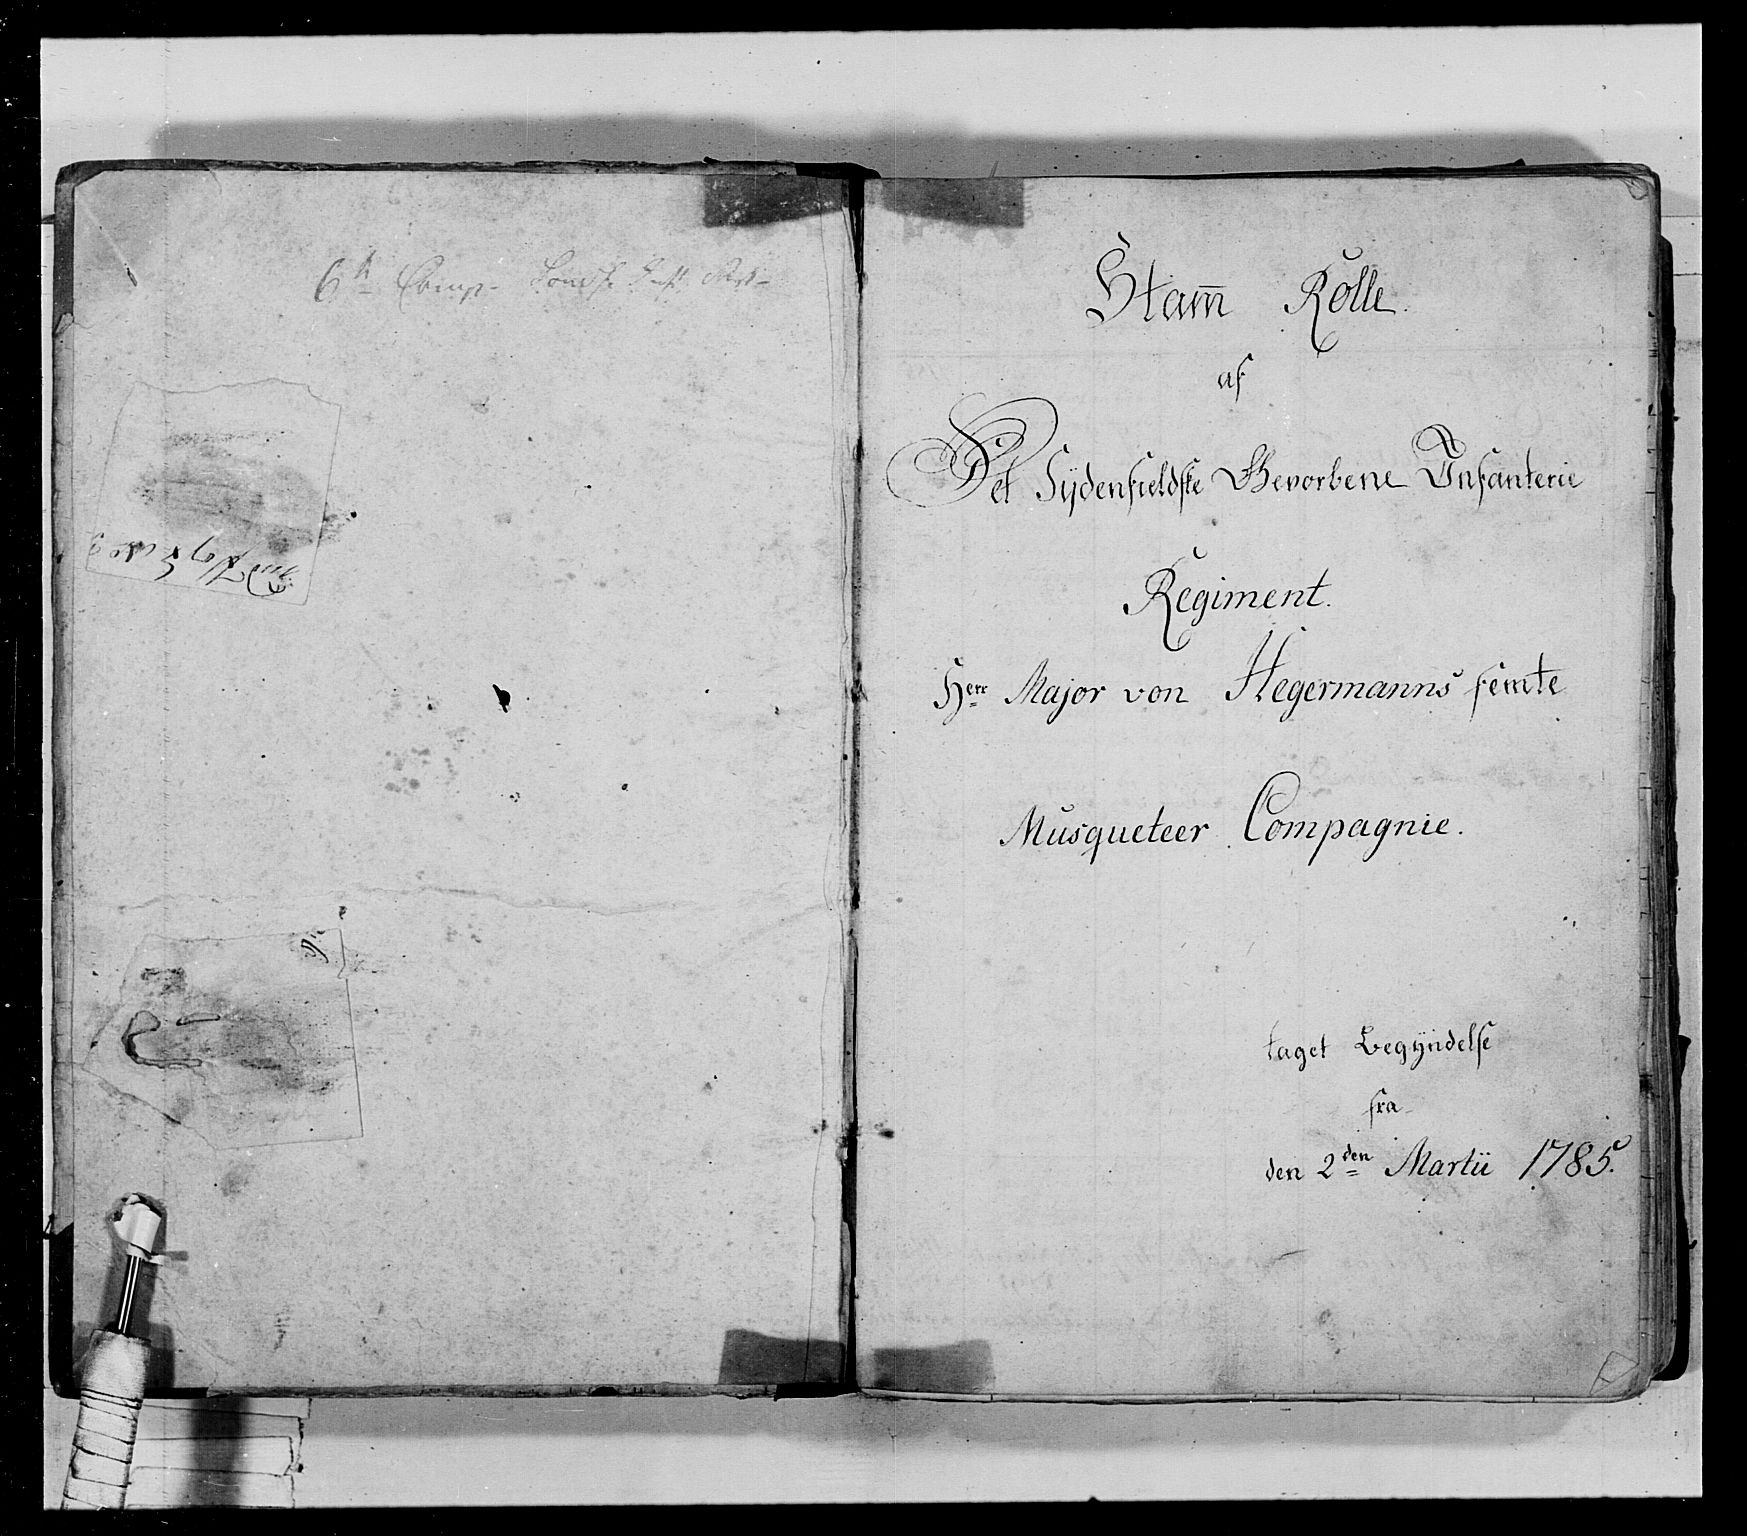 6te Comp.
Stam̄ Rolle.
af
Det Sÿdenfieldske Gevorbene Infanterie
Regiment.
Herr Major von Hegermanns femte
Musqueteer Compagnie.
taget Begÿndelse
fra
den 2den Martii 1785.